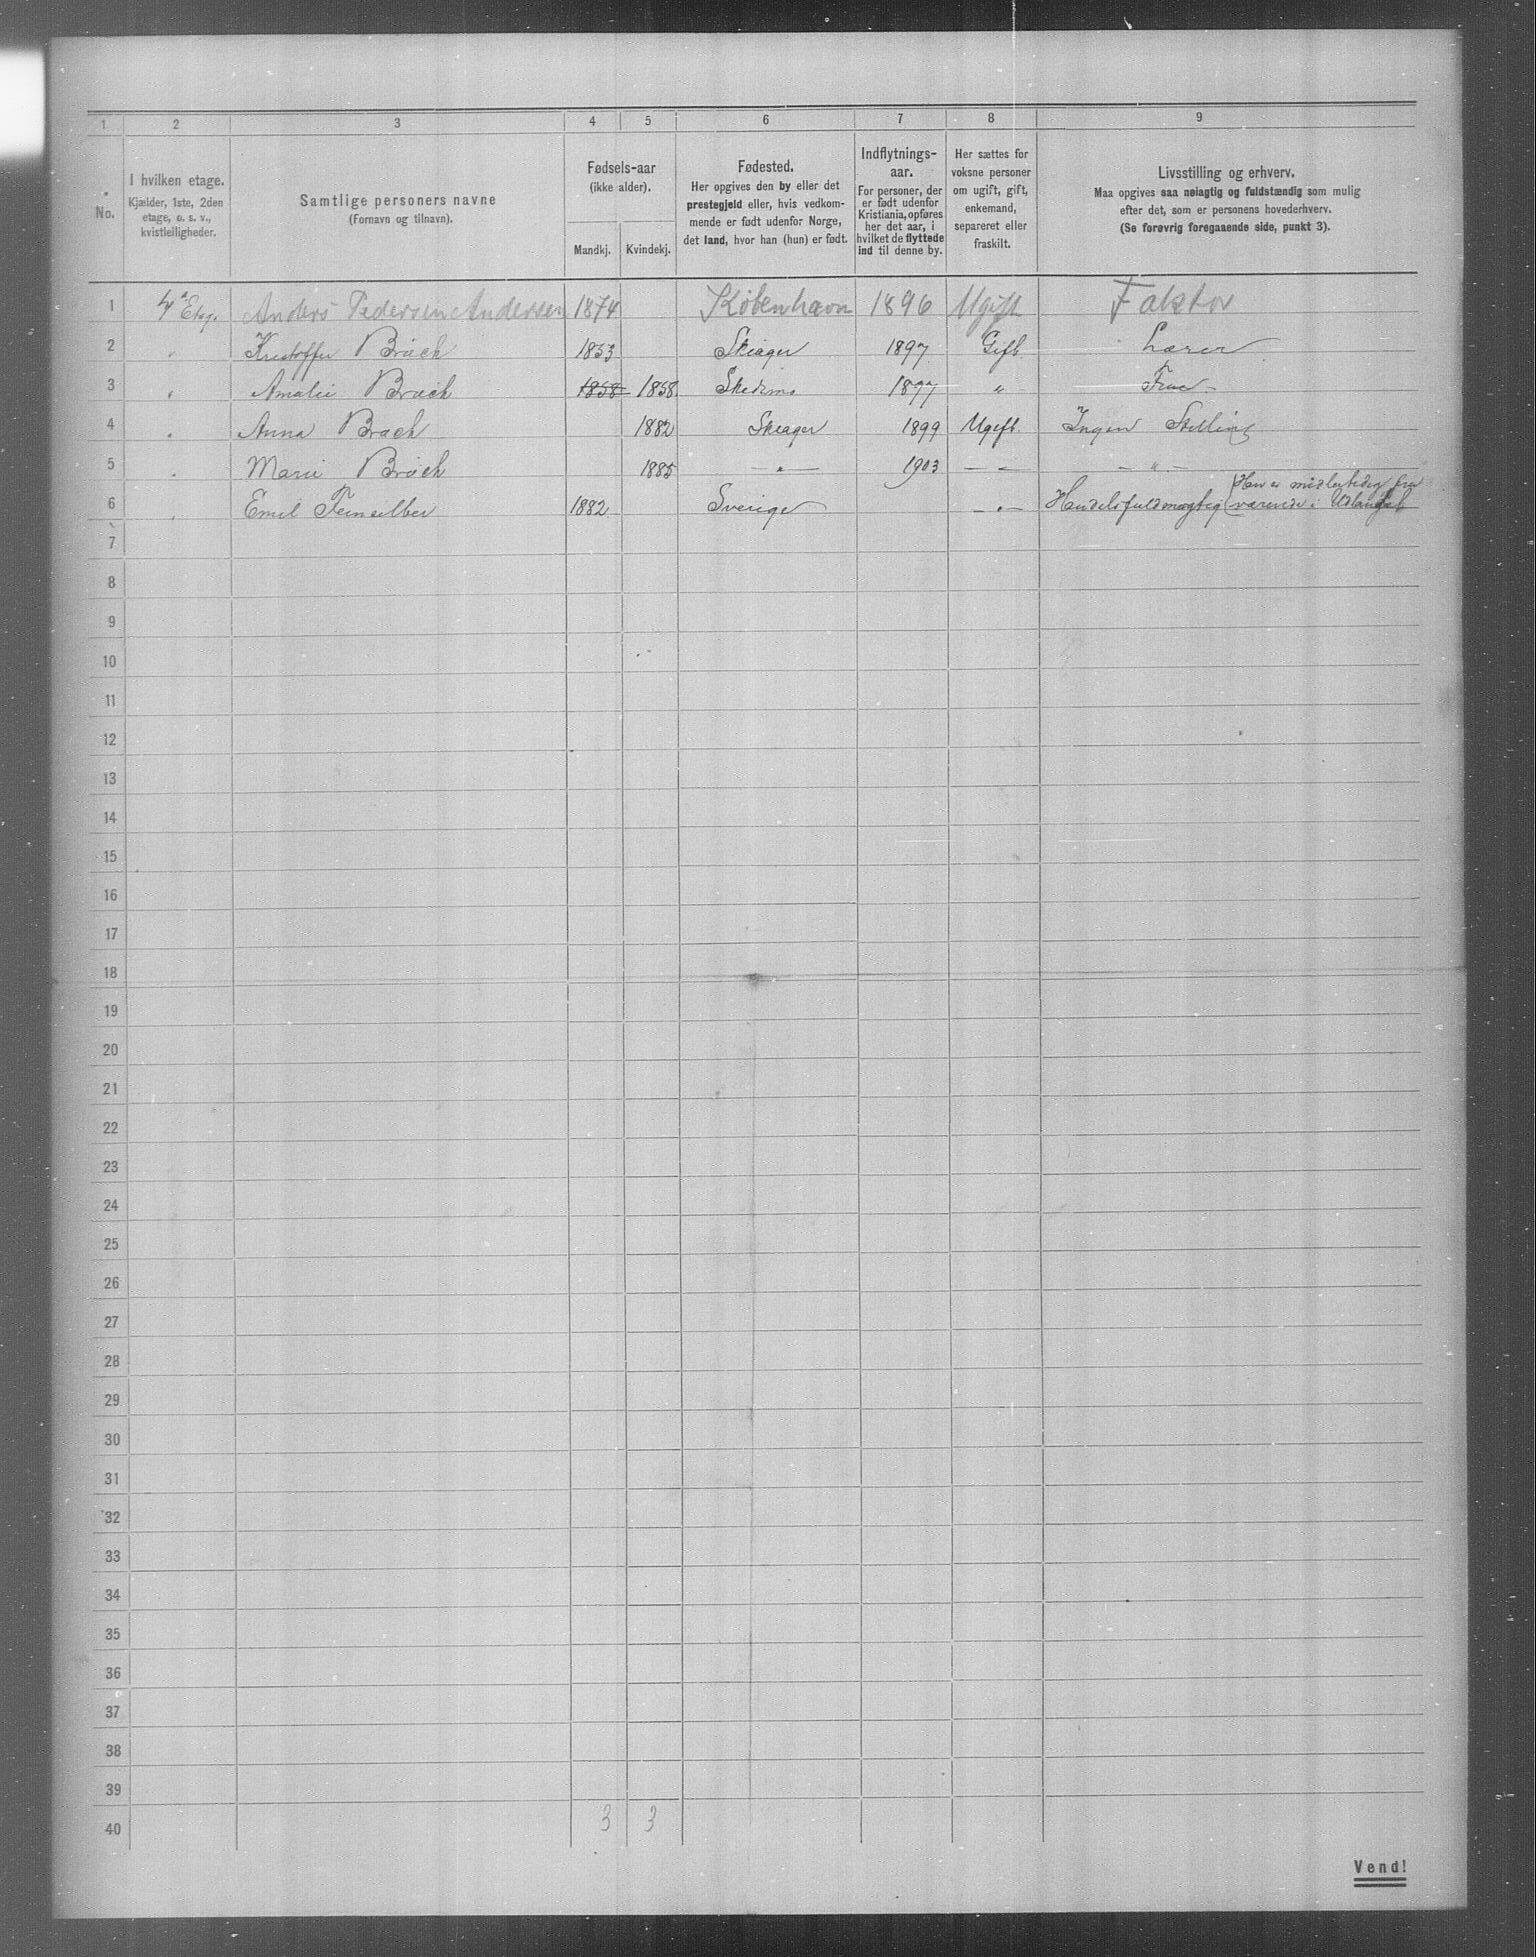 1 2 3 4 5 6 7 8 9
No.
I hvilken etage.
Kjælder, 1ste, 2den
etage, o. s. v.,
kvistleiligheder.
Samtlige personers navne
(Fornavn og tilnavn).
Fødsels-aar
(ikke alder).
Mandkj. Kvindekj.
Fødested.
Her opgives den by eller det
prestegjeld eller, hvis vedkom-
mende er født udenfor Norge,
det land, hvor han (hun) er født.
Indflytnings-
aar.
For personer, der
er født udenfor
Kristiania, opføres
her det aar, i
hvilket de flyttede
ind til denne by.
Her sættes for
voksne personer
om ugift, gift,
enkemand,
separeret eller
fraskilt.
Livsstilling og erhverv.
Maa opgives saa nøiagtig og fuldstændig som mulig
efter det, som er personens hovederhverv.
(Se forøvrig foregaaende side, punkt 3).
1 4de Etg. Anders Pedersen Andersen 1874 København 1896 Ugift Faktor
2 " Kristoffer Brách 1853 Skiager 1897 Gift Lærer
3 " Amalie Brách 1858 1858 Skedsmo 1897 " Frue
4 " Anna Brách 1882 Skiager 1899 Ugift Ingen Stilling
5 " Marie Brách 1885 — " — 1903 — " — — " —
6 " Emil 1882 Sverige — " — Handelsfuldmægtig (Han er midlertidig fra
værende i Udlandet)
7
8
9
10
11
12
13
14
15
16
17
18
19
20
21
22
23
24
25
26
27
28
29
30
31
32
33
34
35
36
37
38
39
40 3 3
Vend!